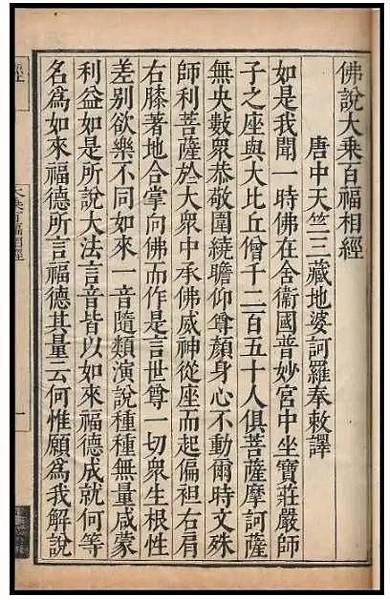 佛說大乘百福相經
唐中天竺三藏地婆訶羅奉敕譯
如是我聞一時佛在舍衞國普妙宮中坐寶莊嚴師
子之座與大比丘僧千二百五十人俱菩薩摩訶薩
無央數衆恭敬圍繞瞻仰尊顏身心不動爾時文殊
師利菩薩於大衆中承佛威神從座而起偏袒右肩
右膝著地合掌向佛而作是言世尊一切衆生根性
差别欲樂不同如來一音隨類演說種種無量咸蒙
利益如是所說大法言音皆以如來福德成就何等
名爲如來福德所言福德其量云何惟願爲我解說
大乘百福相經
一